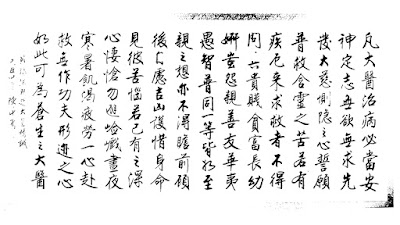 凡大醫治病必當安
神定志無欲無求先
發大慈惻隱之心誓願
普救含靈之苦若有
疾厄來求救者不得
問其貴賤貧富長幼
妍蚩怨親善友華夷
愚智普同一等皆如至
親之想亦不得瞻前顧
後自慮吉凶護惜身命
見彼苦惱若己有之深
心悽愴勿避嶮巇晝夜
寒暑飢渴疲勞一心赴
救無作功夫形迹之心
如此可為蒼生之大醫